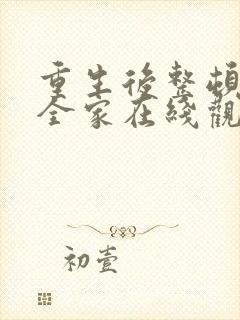 重生後整頓
全家在綫觀
初壹